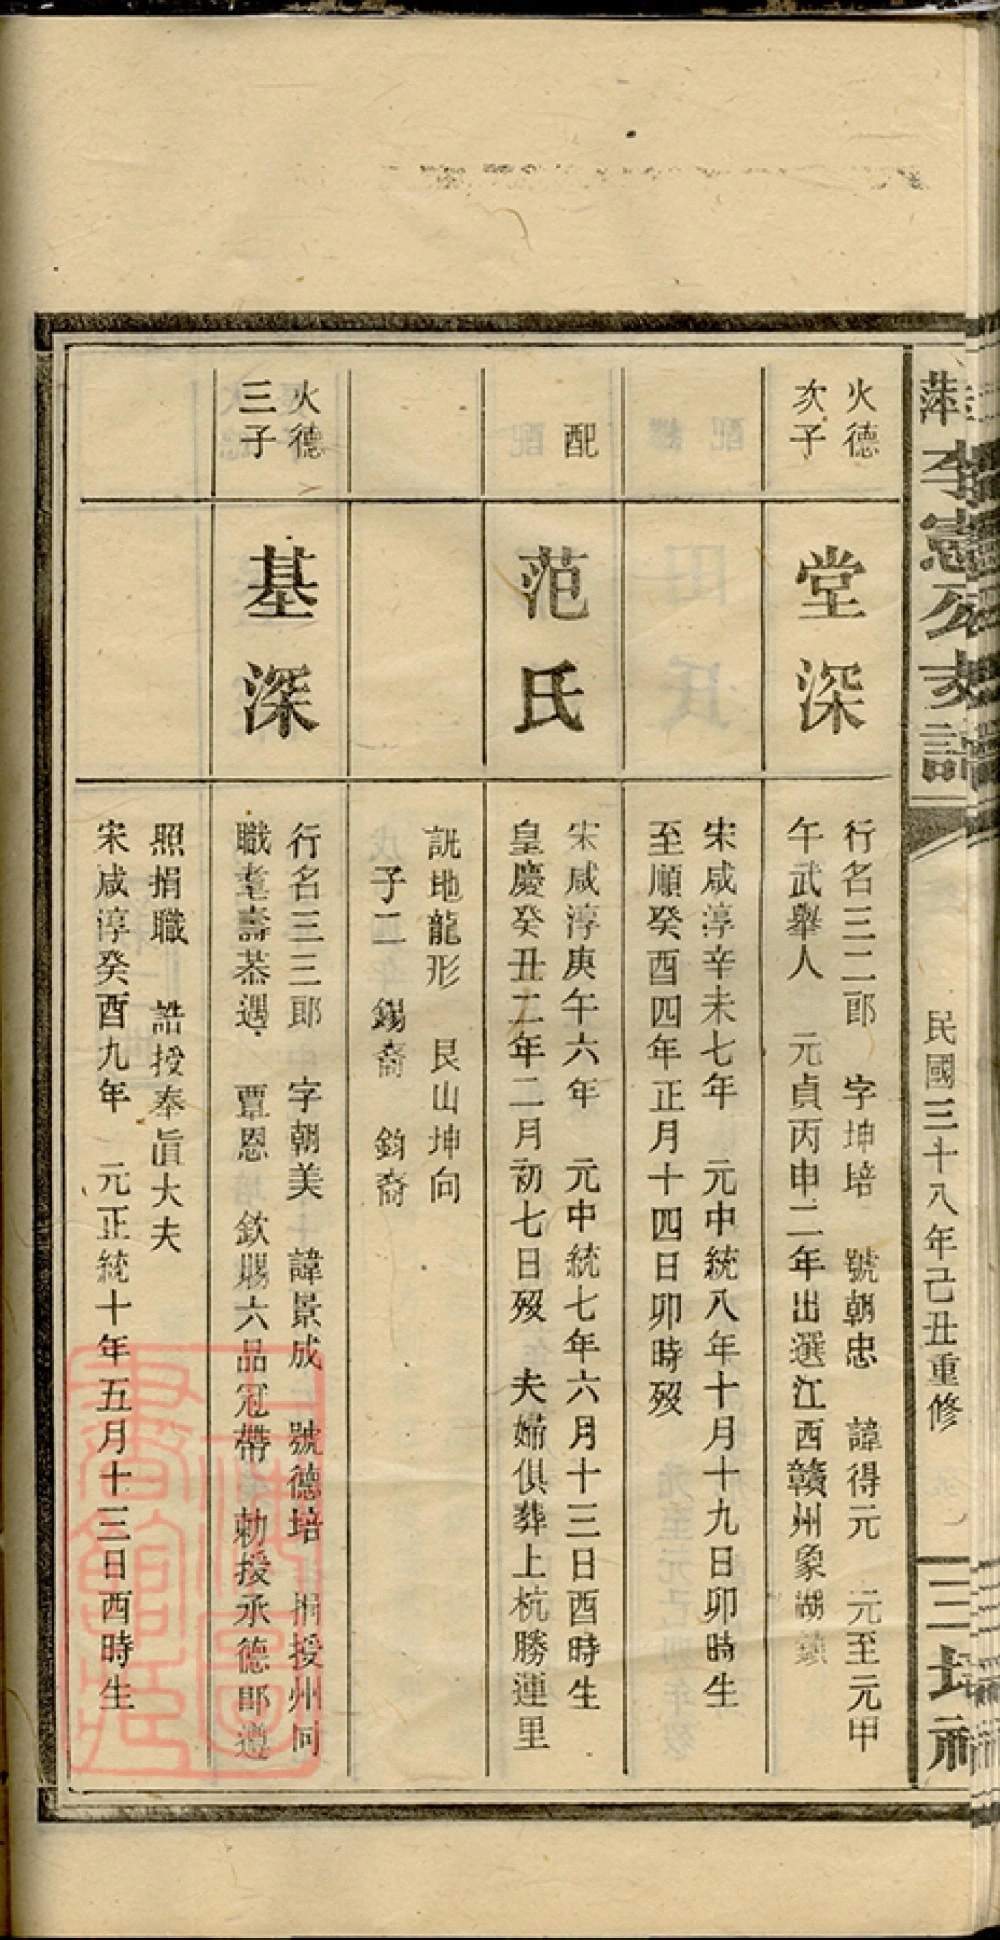 李憲公支譜
民國三十八年己丑重修
三坊祠
火德
次子
堂深
行名三二郎 字坤培 號朝忠 諱得元 元至元甲
午武舉人 元貞丙申二年出選江西贛州象湖鎮
宋咸淳辛未七年 元中統八年十月十九日卯時生
至順癸酉四年正月十四日卯時歿
配
范氏
宋咸淳庚午六年 元中統七年六月十三日酉時生
皇慶癸丑二年二月初七日歿 夫婦俱葬上杭勝運里
地龍形 艮山坤向
子二 錫裔 鈞裔
火德
三子
基深
行名三三郎 字朝美 諱景成 號德培 捐授州同
職耄壽恭遇 覃恩 欽賜六品冠帶 勅授承德郎遵
照捐職 誥授奉直大夫
宋咸淳癸酉九年 元正統十年五月十三日酉時生